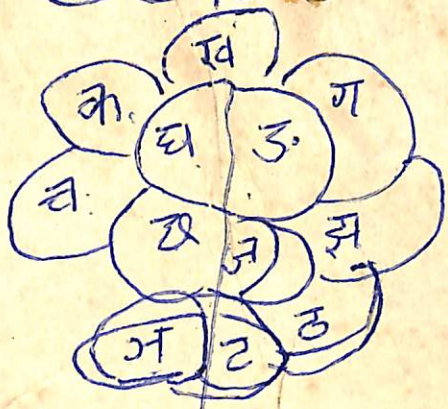 ख
क ग
घ ङ
च
छ ज झ
ञ ट ठ